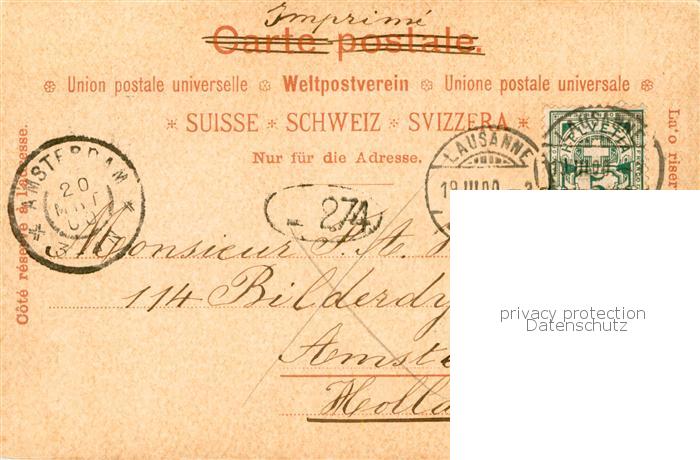 Imprimé
Carte postale.
Union postale universelle Weltpostverein Unione postale universale
* SUISSE * SCHWEIZ * SVIZZERA *
Nur für die Adresse.
Côté réservé à l'adresse.
AMSTERDAM
20
3
LAUSANNE
HELVETIA
5
274
Monsieur
114 Bilderdy
Amste
Holla
privacy protection
Datenschutz